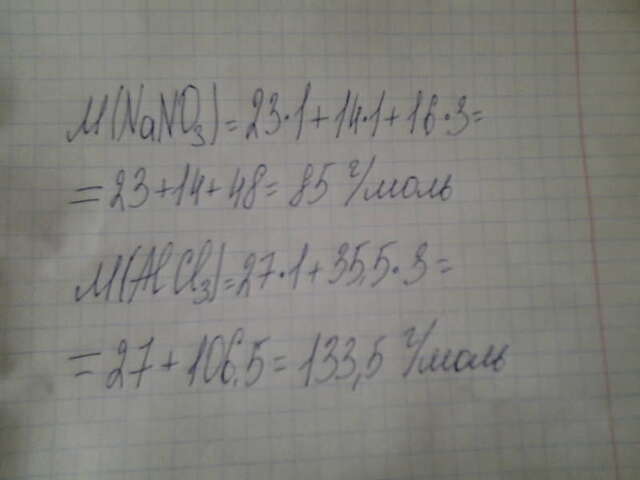 M(NaNO₃)=23·1+14·1+16·3=
=23+14+48=85 г/моль
M(AlCl₃)=27·1+35,5·3=
=27+106,5=133,5 г/моль